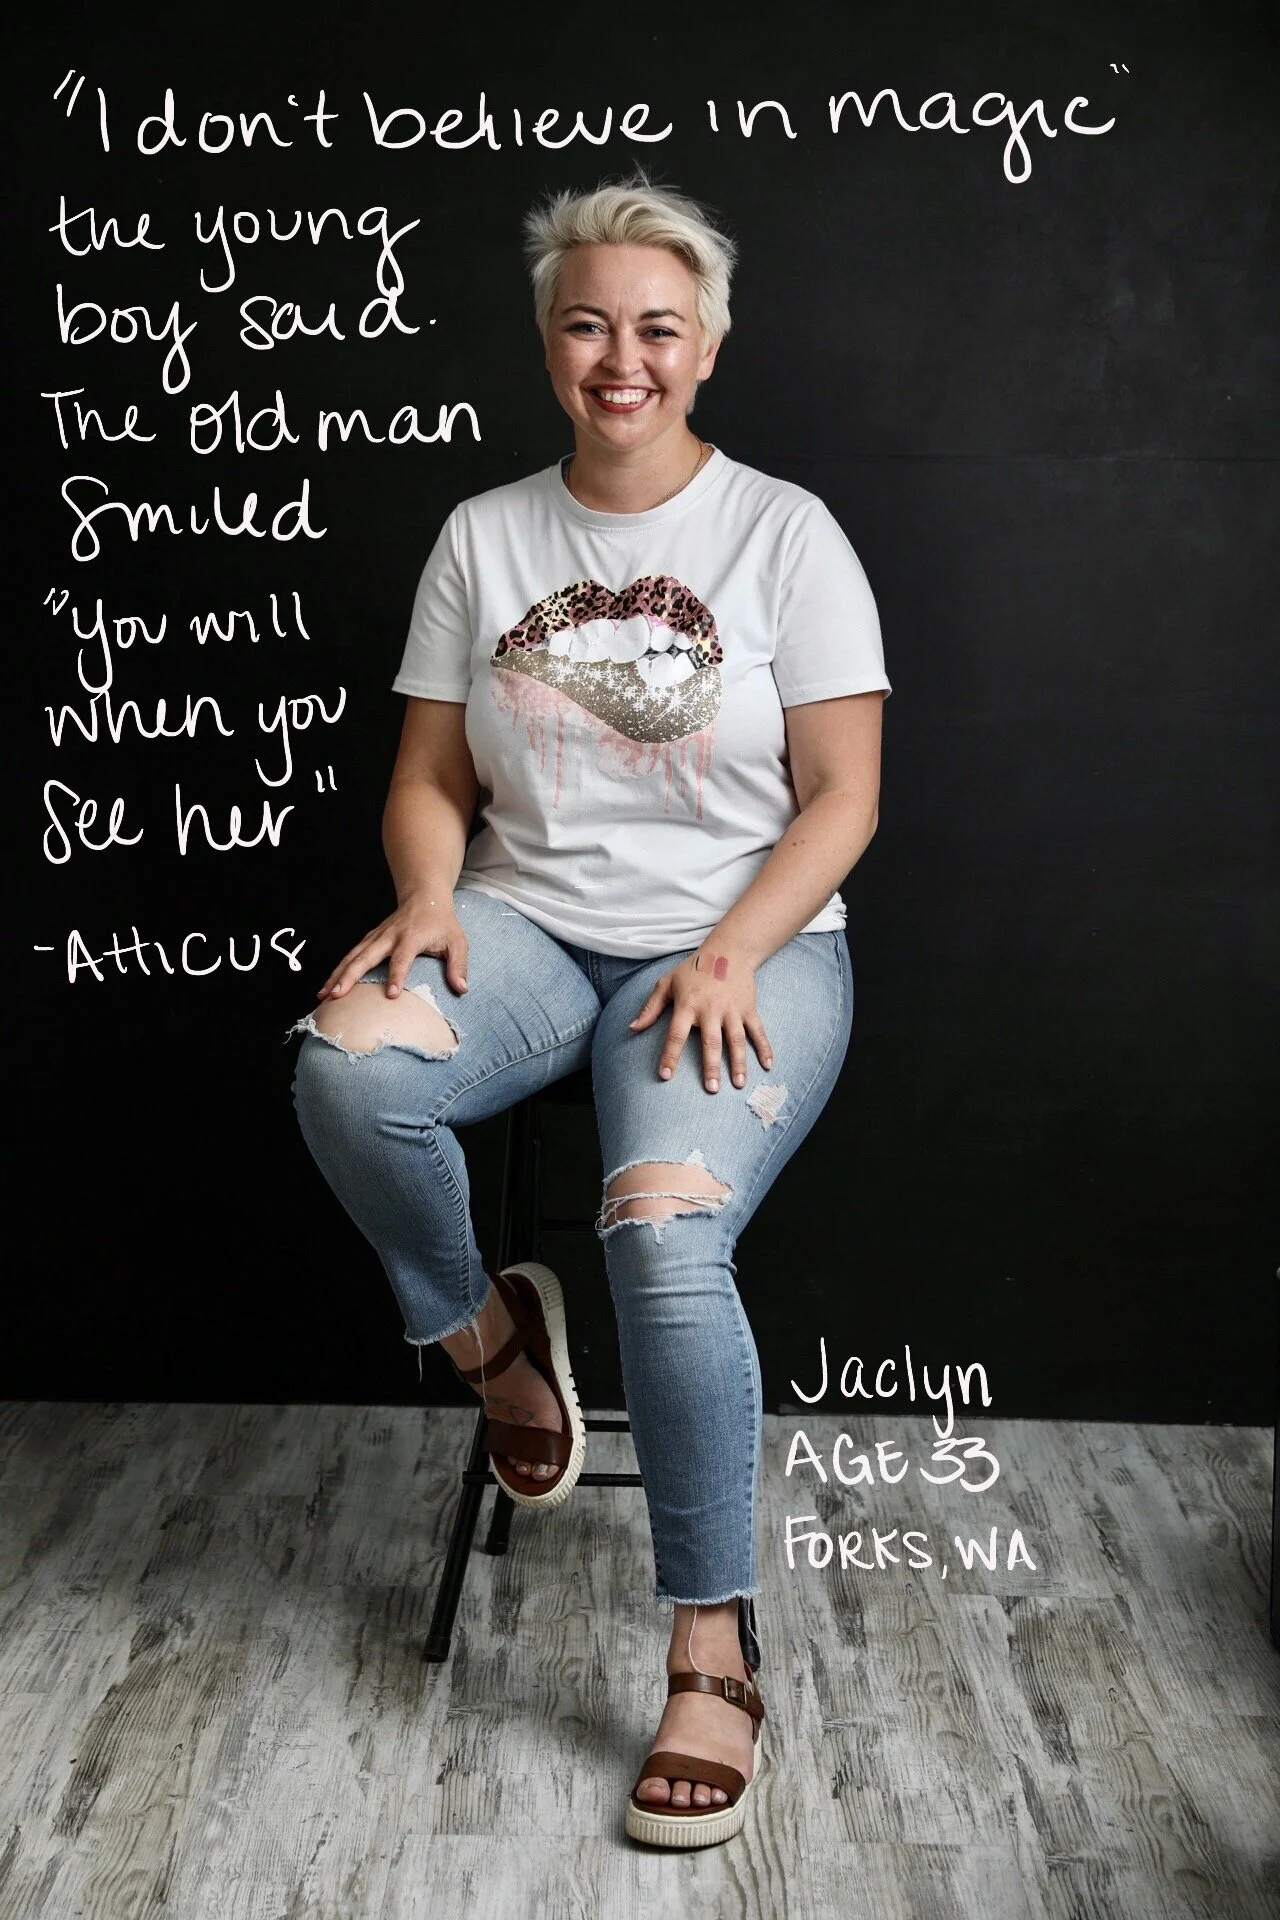 "I don't believe in magic"
the young
boy said.
The old man
Smiled
"you will
when you
See her"
-ATTICUS
Jaclyn
AGE 33
FORKS, WA